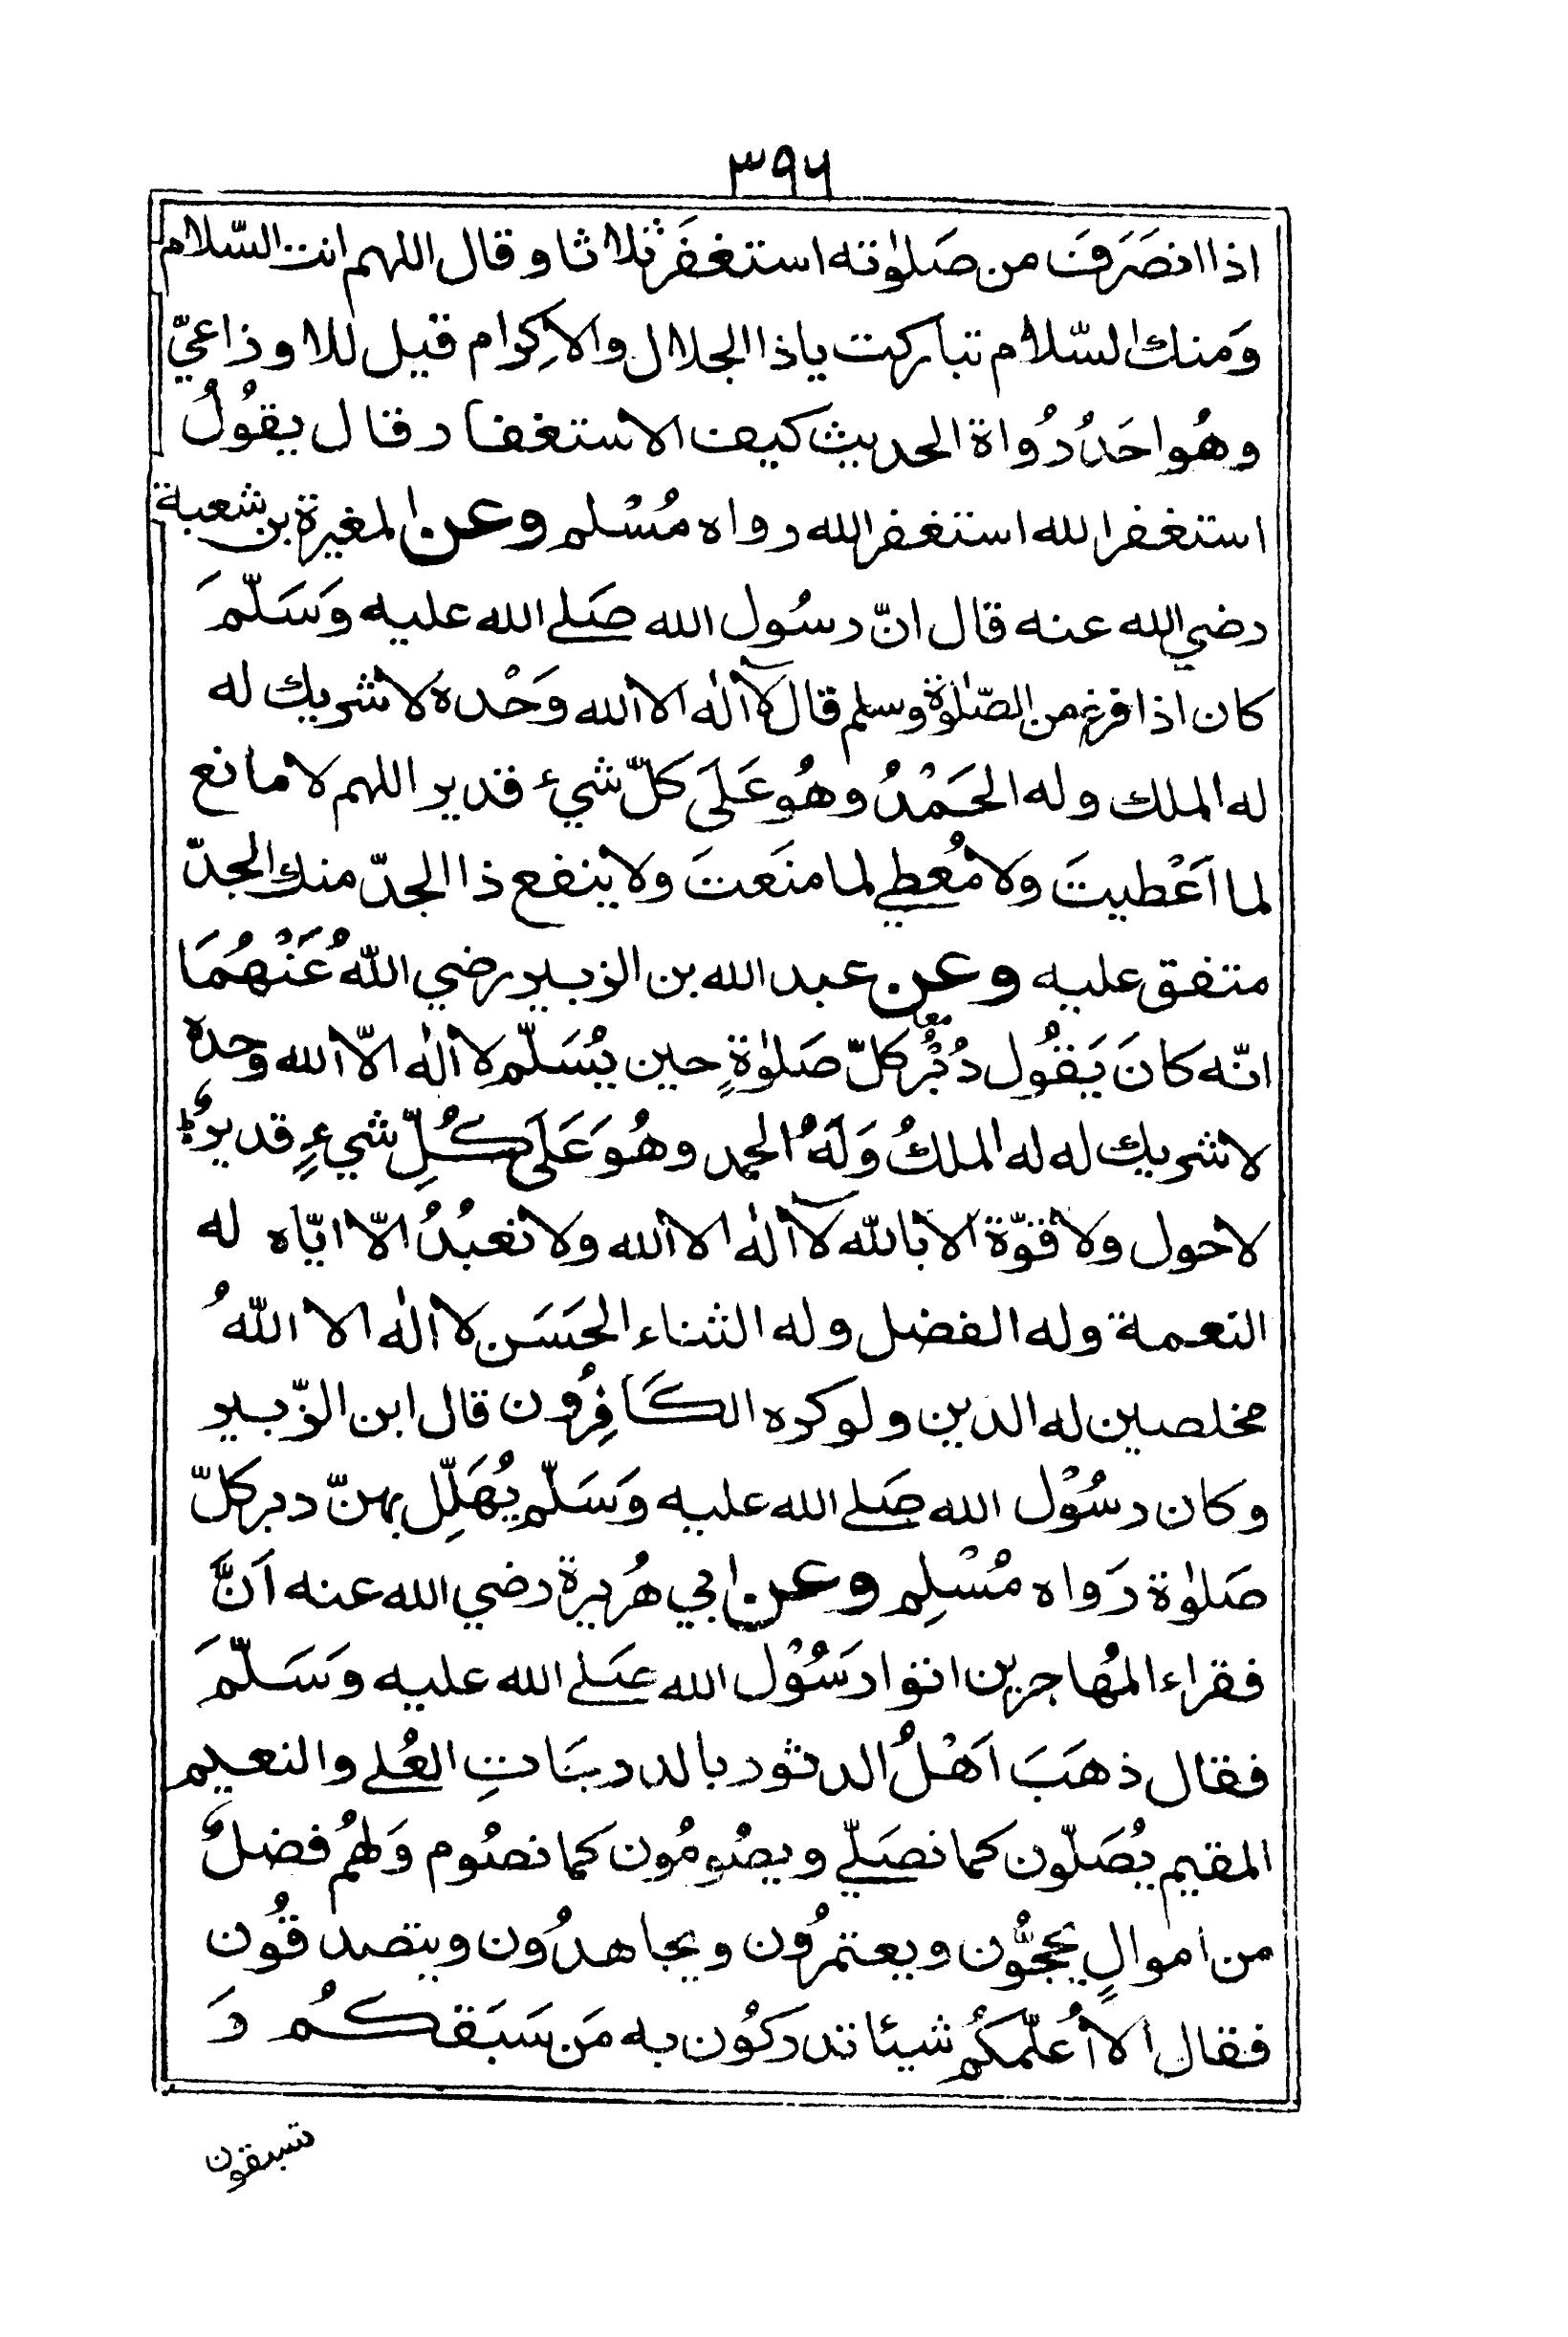 ٣٩٦
اذا انصَرَفَ من صَلٰوته استغفَرَ ثلاثا وقال اللهم انت السّلام
وَمنك السّلام تباركت ياذا الجلال والاكِرام قيل للاوذاعيّ
وهُو احَدُ رُواة الحديث كيف الاستغفار قال يقُولُ
استغفر الله استغفر الله رواه مُسْلم وعن المغيرة بن شعبة
رضي الله عنه قال انّ رسُول الله صَلے الله عليه وَسَلّمَ
كان اذا فرغ من الصّلٰوة وسلم قال لآ الٰه الا الله وَحْده لا شريك له
له الملك وله الحَمْدُ وهُو عَلَى كلّ شيء قدير اللهم لا مانع
لما اَعْطيتَ ولا مُعْطي لما منَعتَ ولا ينفع ذا الجدّ منك الجدّ
متفق عليه وعن عبد الله بن الزبير رضي اللّهُ عَنْهُمَا
انّه كانَ يَقُول دُبُرُ كلّ صَلٰوةٍ حين يُسَلّم لا الٰه الّا الله وحده
لا شريك له له الملكُ وَلَهُ الحمد وهُوَ عَلَى كُلِّ شيءٍ قديرٌ
لا حول ولا قوّة الا باللّه لآ الٰه الا الله ولا نعبُدُ الّا ايّاه له
النعمة وله الفضل وله الثناء الحَسَن لا الٰه الا اللّهُ
مخلصين له الدين ولو كره الكَافِرُون قال ابن الزّبير
وكان رسُوْل الله صَلے الله عليه وَسَلّم يُهَلِّل بهنّ دبر كلّ
صَلٰوة رَواه مُسْلِم وعن ابي هُريرة رضي الله عنه اَنَّ
فقراء المُهاجرين اتوا رَسُوْل الله صَلے الله عليه وَسَلّمَ
فقال ذهَبَ اَهْلُ الدثور بالدرجَاتِ العُلے والنعيم
المقيم يُصَلّون كما نصَلّي ويصُومُون كما نصُوم وَلهُم فضلٌ
من اموالٍ يحجُّون ويعتمرُون ويجاهدُون ويتصدقُون
فقال الا اُعلّمكُم شيئا تدركُون به مَن سَبَقكُم وَ
تسبقون